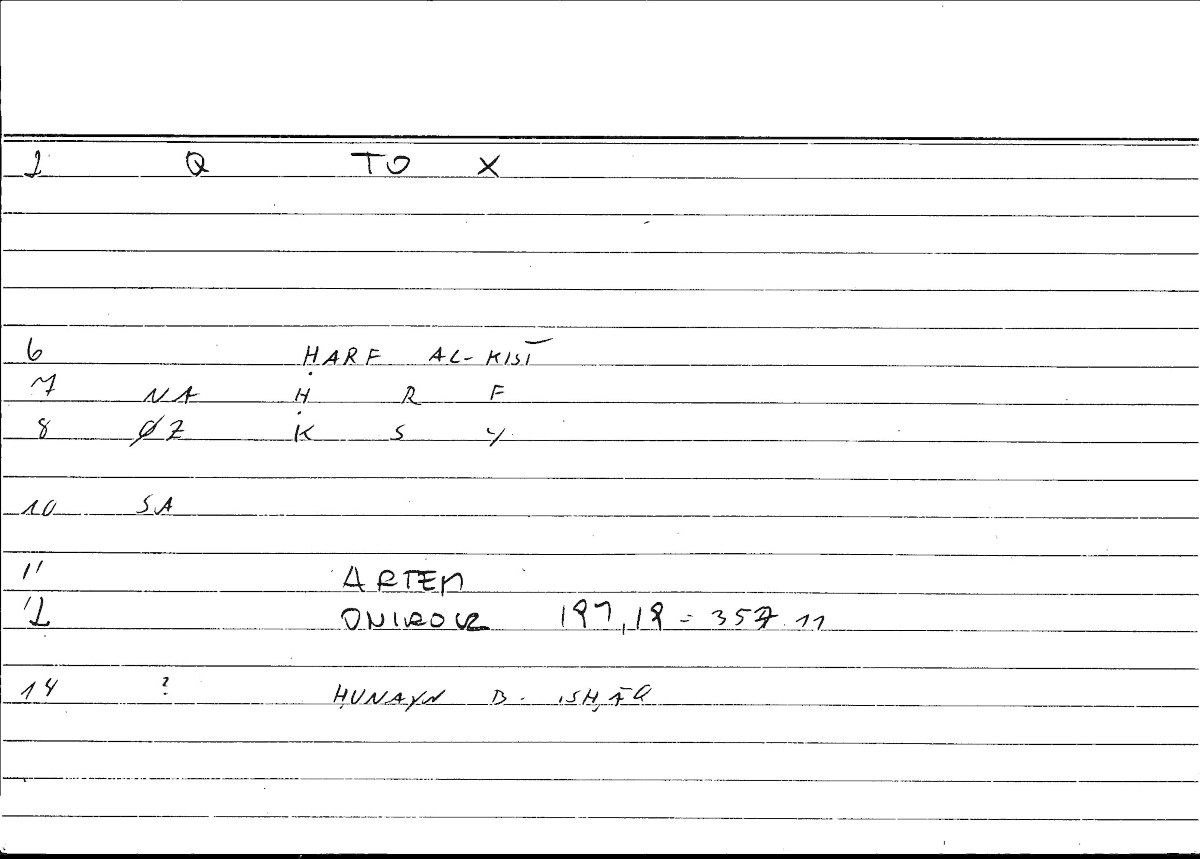 1 Q TO X
6 ḤARF AL-KISĪ
7 NA Ḥ R F
8 ØZ K S Y
10 SA
11 ARTEM
12 ONIROCR 197,18 = 357.11
14 ? ḤUNAYN B. ISḤĀQ